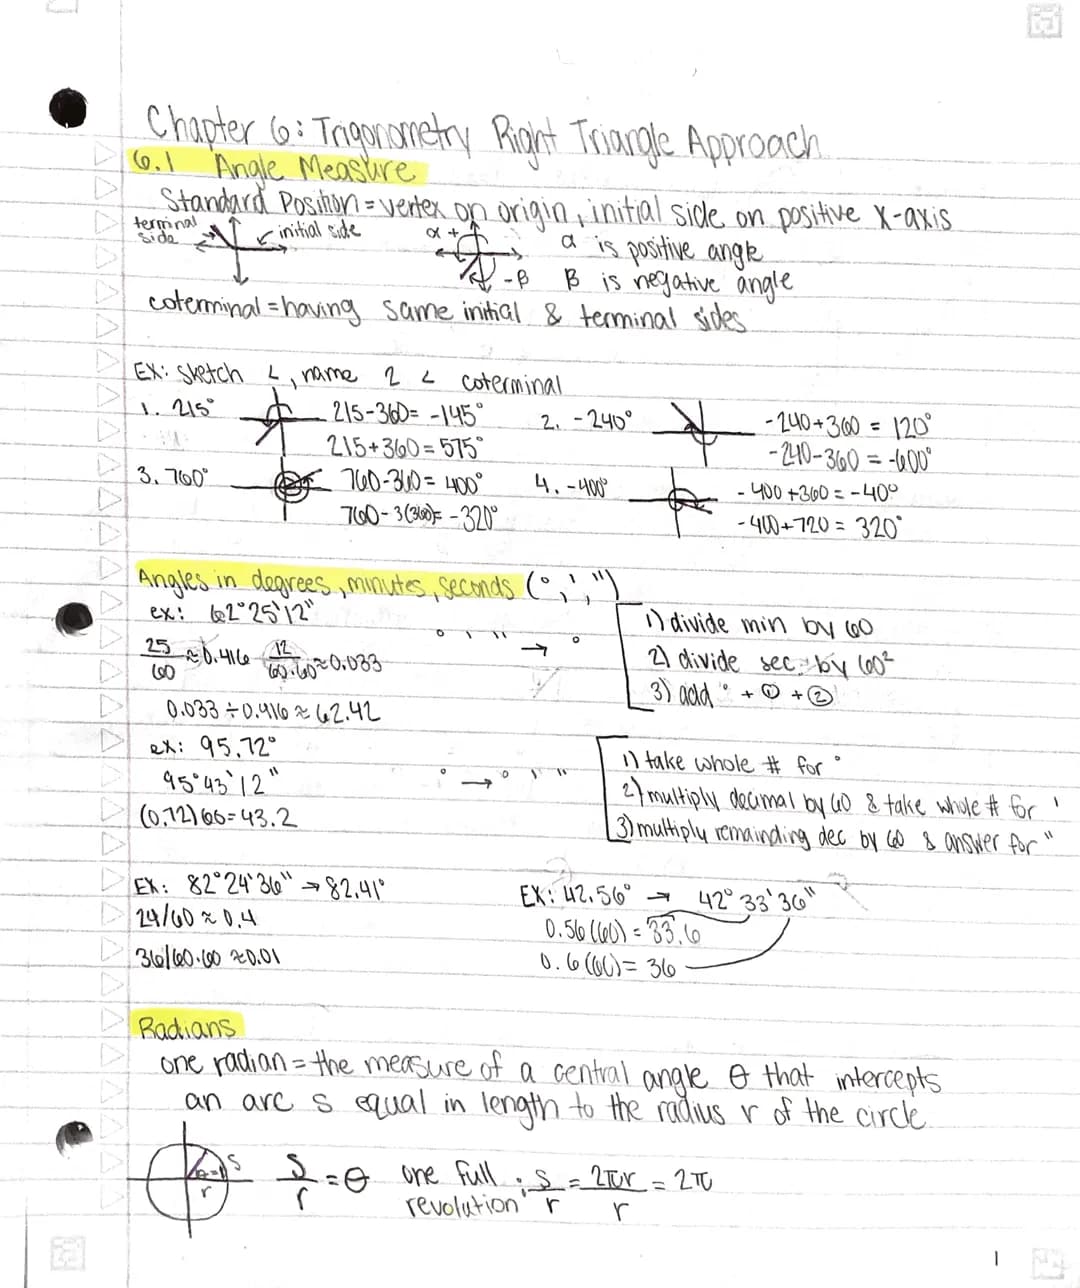 Chapter 6: Trigonometry Right Triangle Approach
6.1 Angle Measure
Standard Position = vertex on origin, initial side on positive x-axis
terminal side
initial side
α +
-β
α is positive angle
B is negative angle
coterminal = having same initial & terminal sides
EX: sketch ∠, name 2 ∠ coterminal
1. 215°
215-360= -145°
215+360=575°
2. -240°
-240+360 = 120°
-240-360 = -600°
3. 760°
760-360= 400°
760-3(360)= -320°
4. -400°
-400+360 = -40°
-400+720 = 320°
Angles in degrees, minutes, seconds (°, ', ")
ex: 62°25'12"
25/60 ≈ 0.416 12/60·60 ≈ 0.033
0.033 ÷ 0.416 ≈ 62.42
° ' " → °
1) divide min by 60
2) divide sec by 60²
3) add ° + ① + ②
ex: 95.72°
95°43'12"
(0.72)60=43.2
° → ° ' "
1) take whole # for °
2) multiply decimal by 60 & take whole # for '
3) multiply remainding dec by 60 & answer for "
EX: 82°24'36" → 82.41°
24/60 ≈ 0.4
36/60·60 ≈ 0.01
EX: 42.56° → 42°33'36"
0.56(60) = 33.6
0.6(60) = 36
Radians
one radian = the measure of a central angle θ that intercepts
an arc s equal in length to the radius r of the circle
s
r
s/r = θ
one full revolution: s/r = 2πr/r = 2π
1